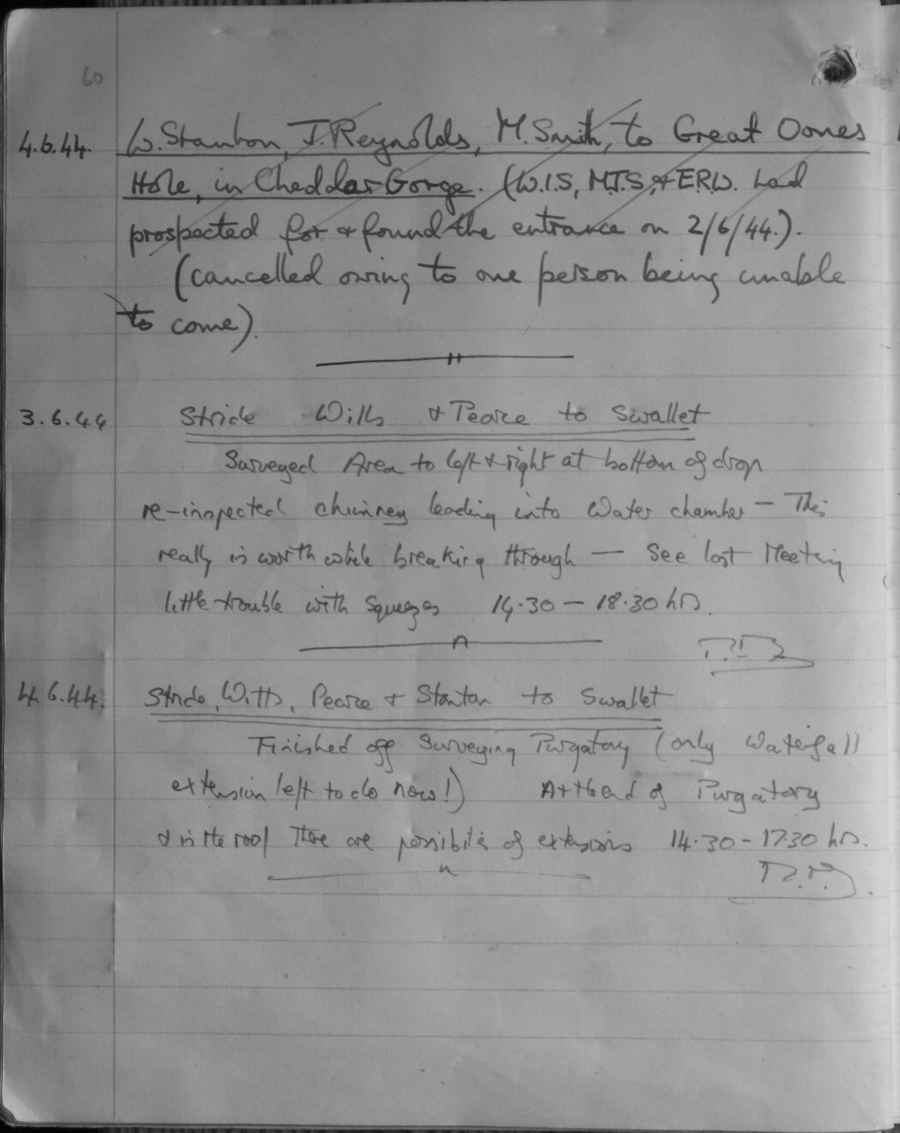 60
4.6.44. W. Stanton, J. Reynolds, M. Smith, to Great Oones
Hole, in Cheddar Gorge. (W.I.S, M.T.S, & E.R.W. had
prospected for & found the entrance on 2/6/44.).
(cancelled owing to one person being unable
to come).
3.6.44 Stride Witts & Pearce to Swallet
Surveyed Area to left & right at bottom of drop
re-inspected chimney leading into Water chamber — This
really is worth while breaking through — See last Meeting
little trouble with squeezes 14.30 — 18.30 hrs.
4.6.44. Stride, Witts, Pearce & Stanton to Swallet
Finished off Surveying Purgatory (only Waterfall
extension left to do now!) At Head of Purgatory
& in the roof there are possibilities of extensions 14.30 - 1730 hrs.